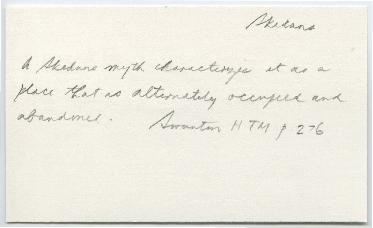 Skedans
A Skedans myth characterizes it as a
place that is alternately occupied and
abandoned.     Swanton HTM p 276